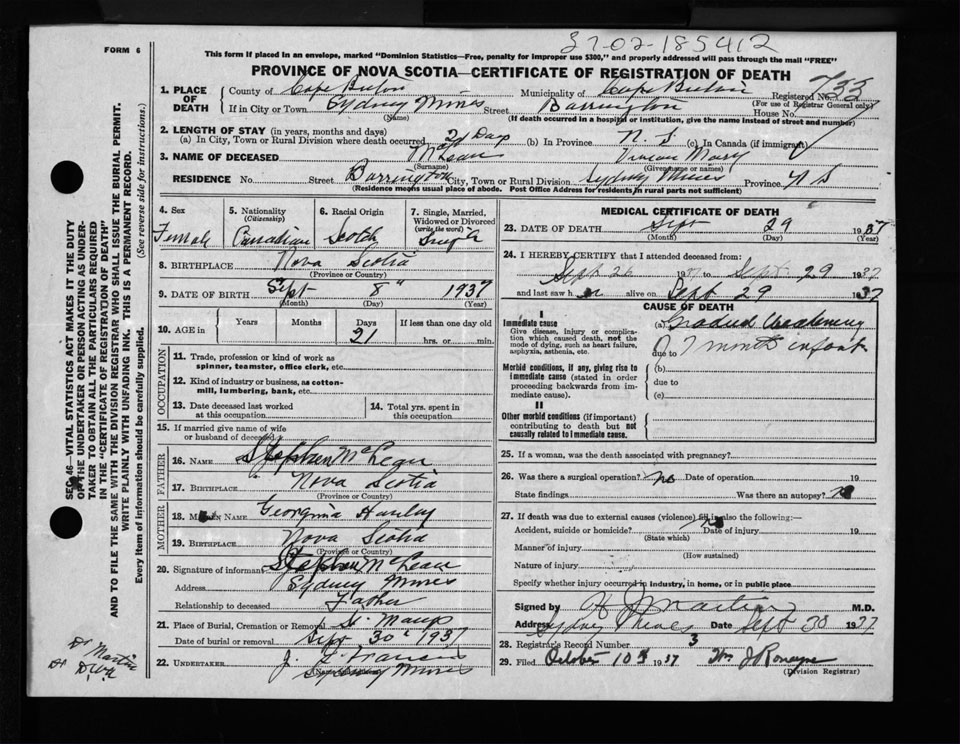 37-02-185412
FORM 6
This form if placed in an envelope, marked "Dominion Statistics—Free, penalty for improper use $300," and properly addressed will pass through the mail "FREE"
PROVINCE OF NOVA SCOTIA—CERTIFICATE OF REGISTRATION OF DEATH
1. PLACE OF DEATH
County of Cape Breton Municipality of Cape Breton Registered No. 733
(For use of Registrar General only)
If in City or Town Sydney Mines Street Barrington House No.
(Name)
(If death occurred in a hospital or institution, give the name instead of street and number)
2. LENGTH OF STAY (in years, months and days)
(a) In City, Town or Rural Division where death occurred 21 Days (b) In Province N. S (c) In Canada (if immigrant)
3. NAME OF DECEASED Vivian Mary
(Surname) (Given name or names)
RESIDENCE No. Street Barrington City, Town or Rural Division Sydney Mines Province N S
(Residence means usual place of abode. Post Office Address for residents in rural parts not sufficient)
4. Sex
Female
5. Nationality
(Citizenship)
Canadian
6. Racial Origin
Scotch
7. Single, Married, Widowed or Divorced
(write the word)
Single
8. BIRTHPLACE Nova Scotia
(Province or Country)
9. DATE OF BIRTH Sept 8" 1937
(Month) (Day) (Year)
10. AGE in
Years Months Days If less than one day old
21 hrs. or min.
OCCUPATION
11. Trade, profession or kind of work as spinner, teamster, office clerk, etc.
12. Kind of industry or business, as cotton-mill, lumbering, bank, etc.
13. Date deceased last worked at this occupation
14. Total yrs. spent in this occupation
15. If married give name of wife or husband of deceased
FATHER
16. NAME Stephen McLean
17. BIRTHPLACE Nova Scotia
(Province or Country)
MOTHER
18. Maiden NAME Georgina
19. BIRTHPLACE Nova Scotia
(Province or Country)
20. Signature of informant Stephen McLean
Address Sydney Mines
Relationship to deceased Father
21. Place of Burial, Cremation or Removal St. Marys
Date of burial or removal Sept 30" 1937
22. UNDERTAKER
Sydney Mines
MEDICAL CERTIFICATE OF DEATH
23. DATE OF DEATH Sept 29 1937
(Month) (Day) (Year)
24. I HEREBY CERTIFY that I attended deceased from:
Sept 26 1937 to Sept 29 1937
and last saw her alive on Sept 29 1937
CAUSE OF DEATH
I
Immediate cause
Give disease, injury or complication which caused death, not the mode of dying, such as heart failure, asphyxia, asthenia, etc.
(a) Gradual weakening
due to 7 month infant
Morbid conditions, if any, giving rise to immediate cause (stated in order proceeding backwards from immediate cause).
(b)
due to
(c)
II
Other morbid conditions (if important) contributing to death but not causally related to immediate cause.
25. If a woman, was the death associated with pregnancy?
26. Was there a surgical operation? no Date of operation 19
State findings Was there an autopsy? no
27. If death was due to external causes (violence) fill in also the following:—
Accident, suicide or homicide? no Date of injury 19
(State which)
Manner of injury
(How sustained)
Nature of injury
Specify whether injury occurred in industry, in home, or in public place
Signed by H J Martin M.D.
Address Sydney Mines Date Sept 30 1937
28. Registrar's Record Number 3
29. Filed October 1937
(Division Registrar)
SEC. 46—VITAL STATISTICS ACT MAKES IT THE DUTY OF THE UNDERTAKER OR PERSON ACTING AS UNDERTAKER TO OBTAIN ALL THE PARTICULARS REQUIRED IN THE "CERTIFICATE OF REGISTRATION OF DEATH" AND TO FILE THE SAME WITH THE DIVISION REGISTRAR WHO SHALL ISSUE THE BURIAL PERMIT.
WRITE PLAINLY WITH UNFADING INK. THIS IS A PERMANENT RECORD.
Every item of information should be carefully supplied. (See reverse side for instructions.)
Dr Martin